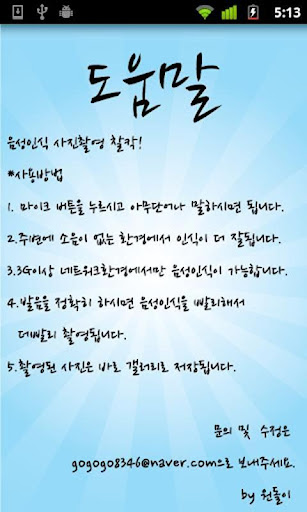 5:13
도움말
음성인식 사진촬영 찰칵!
#사용방법
1. 마이크 버튼을 누르시고 아무단어나 말하시면 됩니다.
2.주변에 소음이 없는 환경에서 인식이 더 잘됩니다.
3.3G이상 네트워크환경에서만 음성인식이 가능합니다.
4.발음을 정확히 하시면 음성인식을 빨리해서
더빨리 촬영됩니다.
5.촬영된 사진은 바로 갤러리로 저장됩니다.
문의 및 수정은
gogogo8346@naver.com으로 보내주세요.
by 원돌이